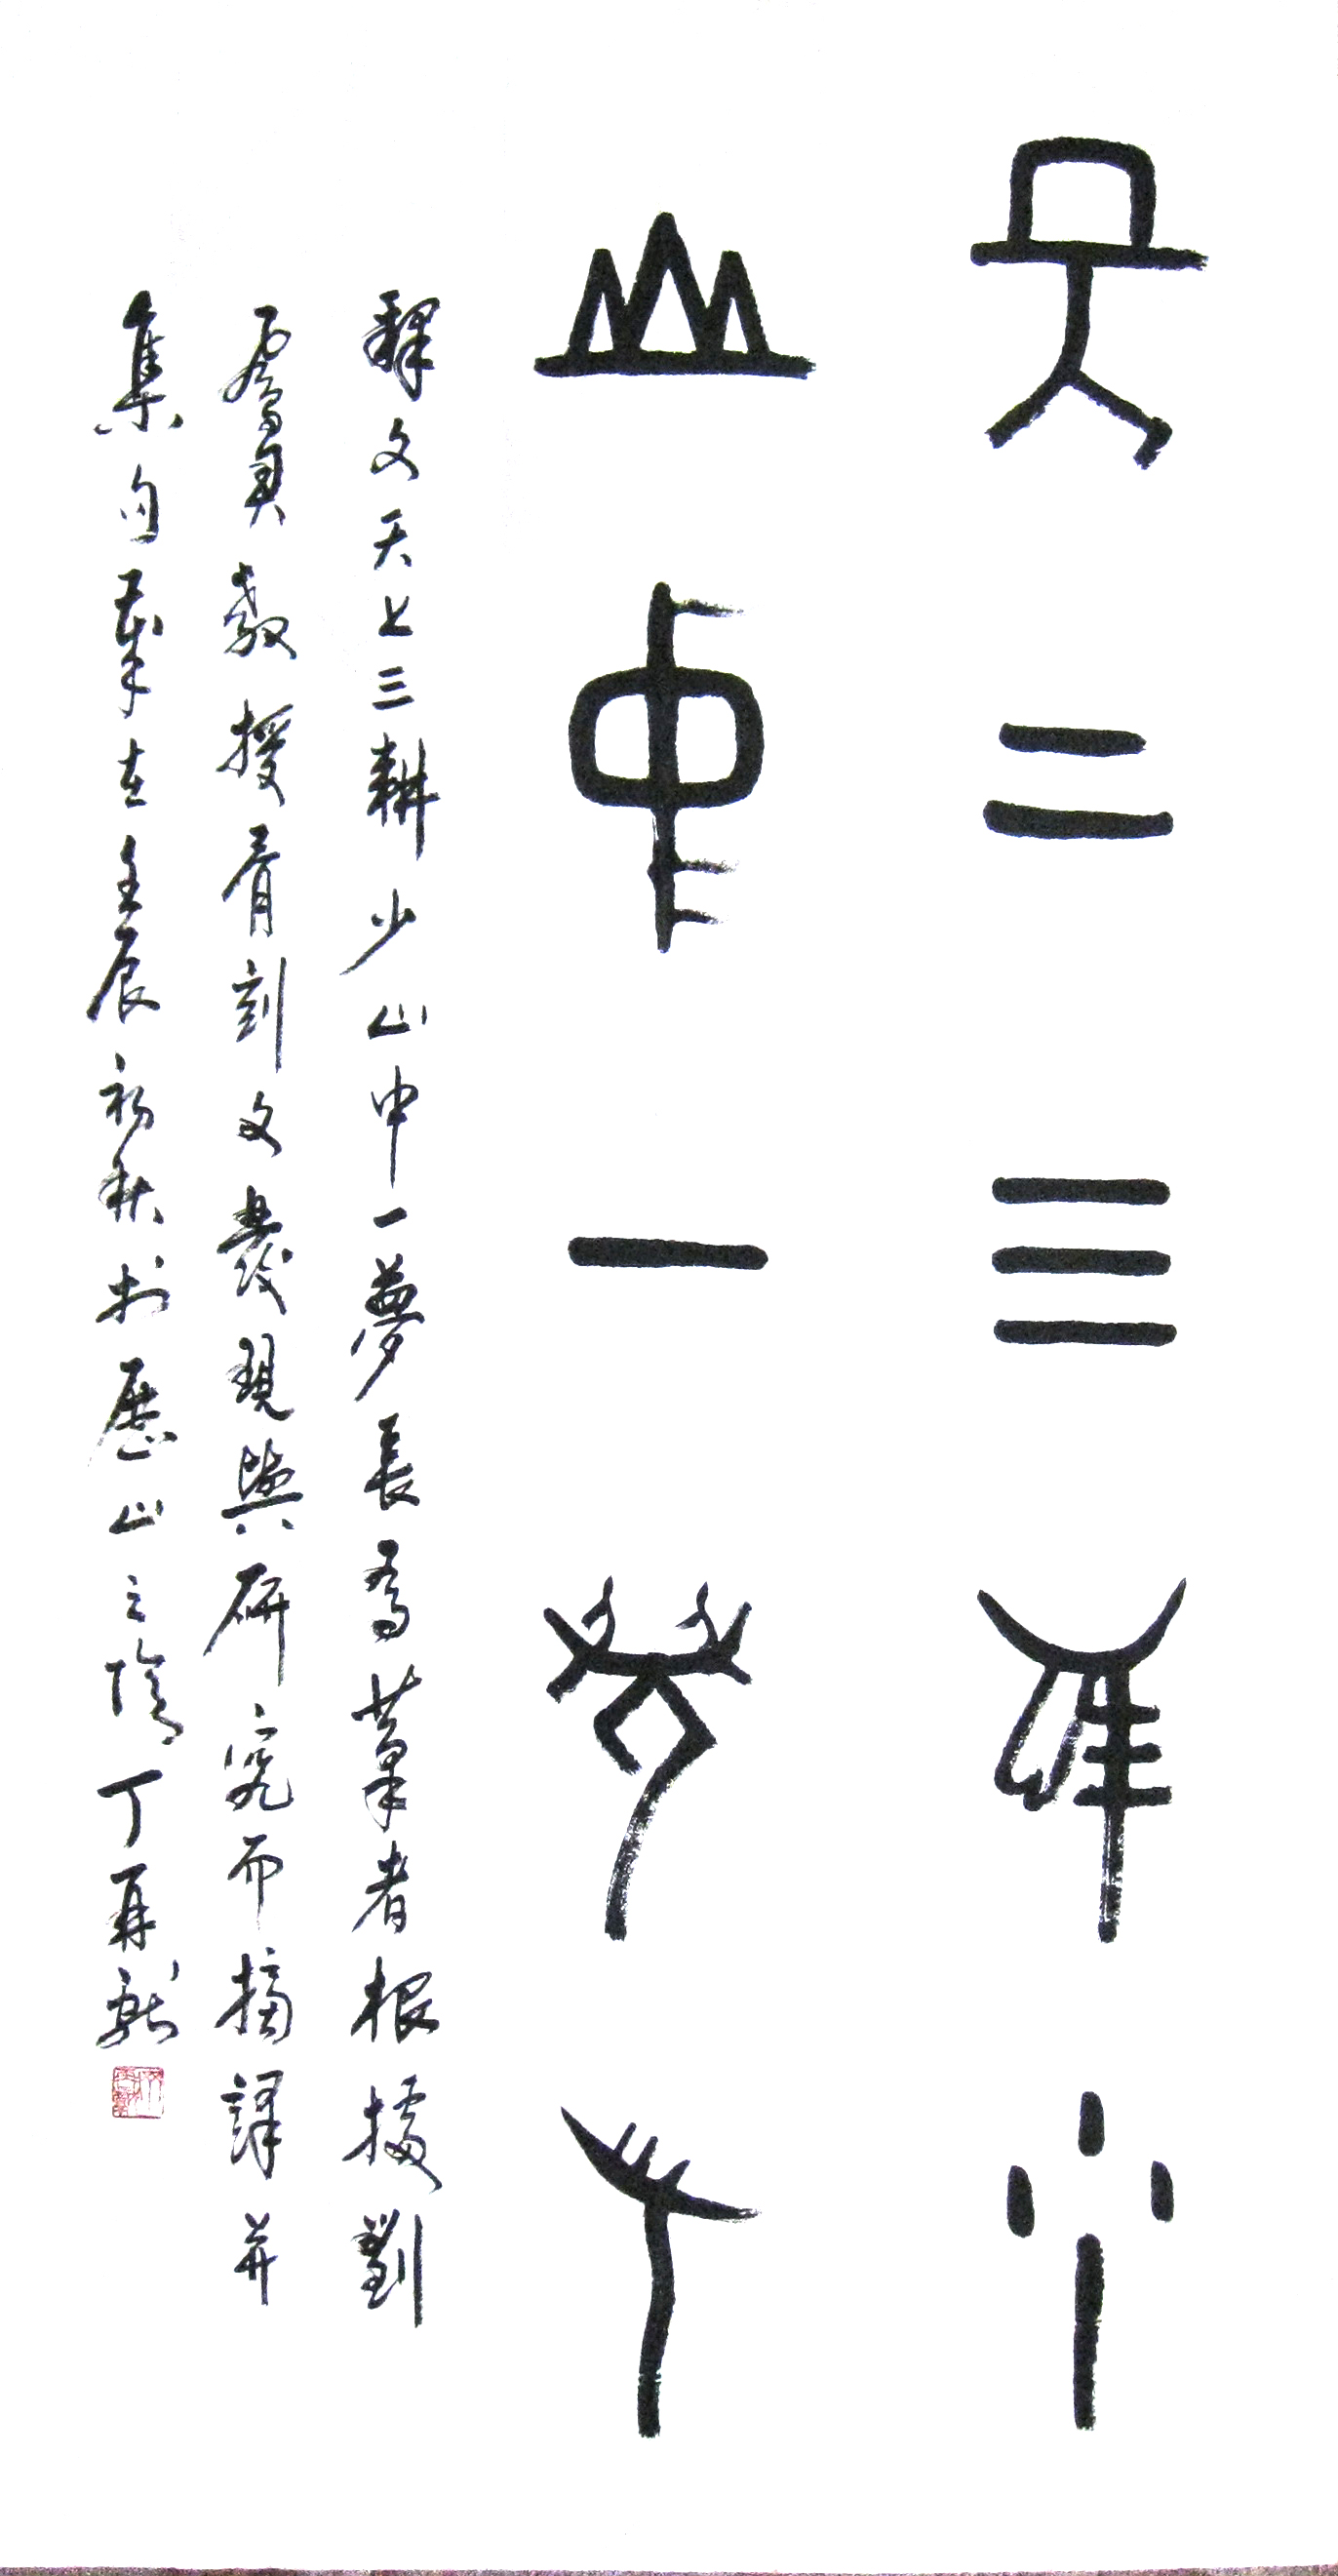 天上三耕少
山中一夢長
釋文天上三耕少山中一夢長為筆者根據劉
鳳君教授骨刻文發現與研究而摘譯并
集句 在壬辰初秋於歷山之陰丁再献